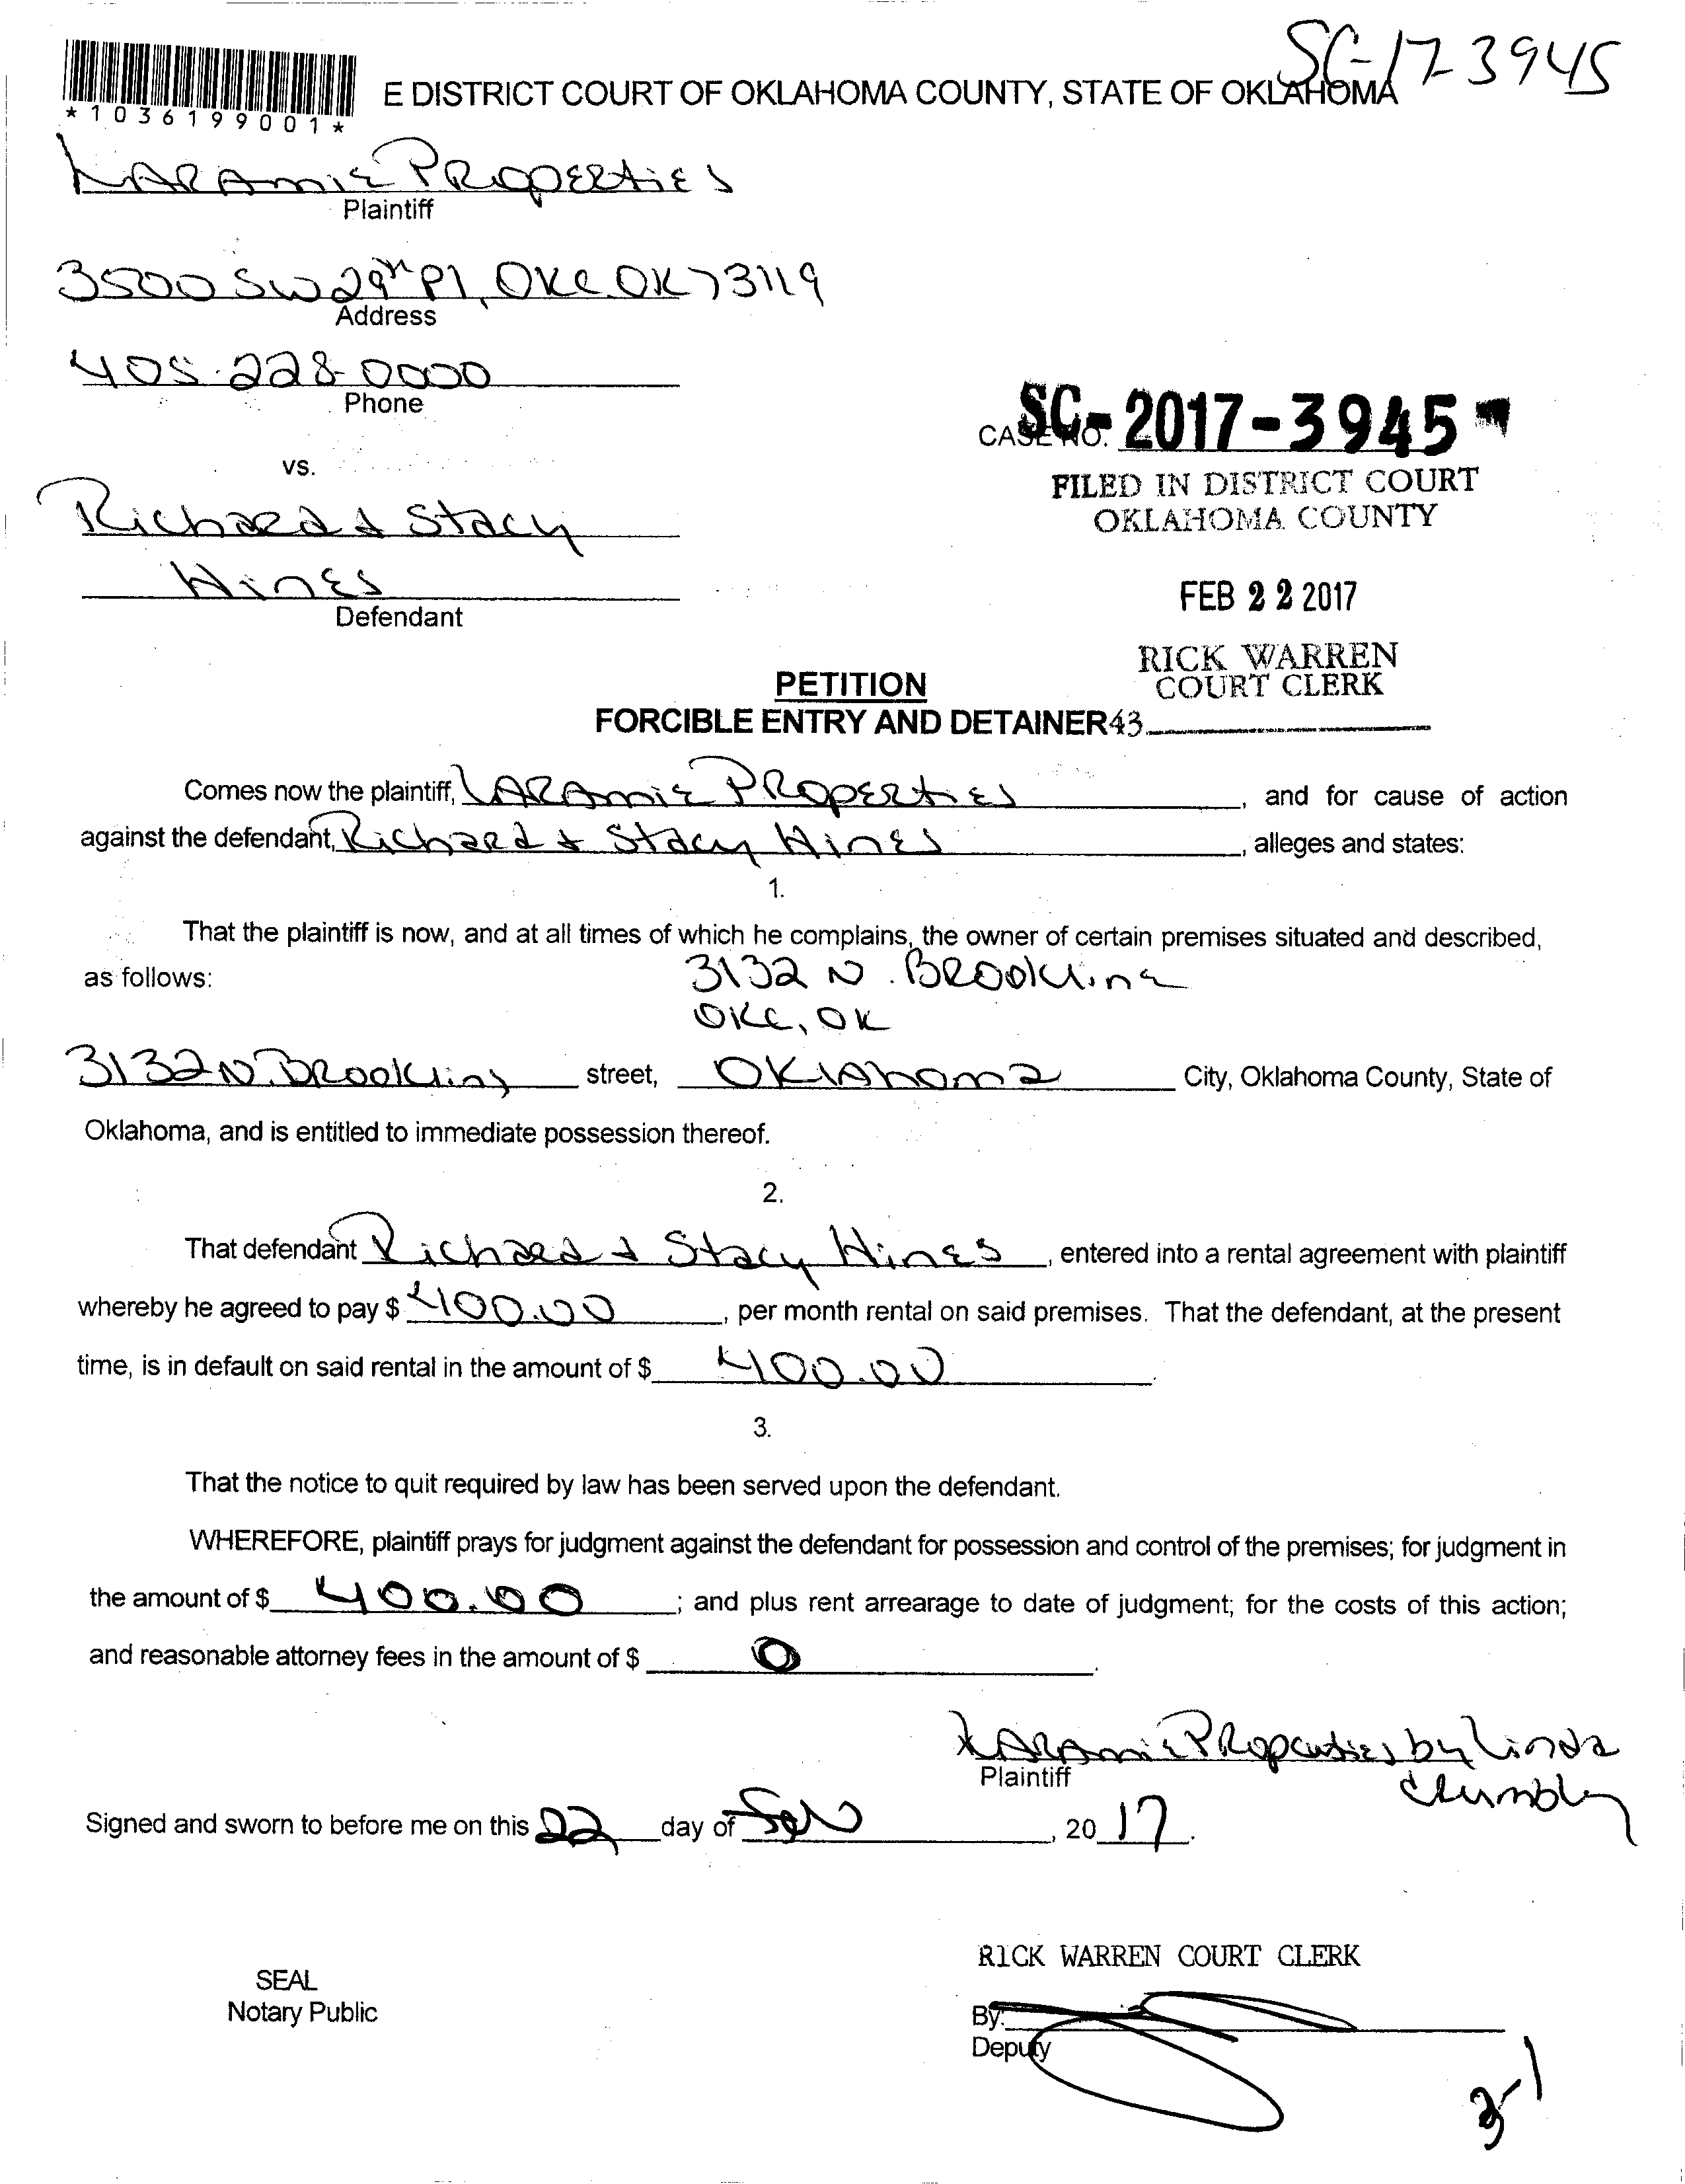 SC-17-3945
*1036199001*
E DISTRICT COURT OF OKLAHOMA COUNTY, STATE OF OKLAHOMA
LARAmiE PROPERtiES
Plaintiff
3500 SW 29th Pl, OKC OK 73119
Address
405-228-0000
Phone
CASE NO. SC-2017-3945
vs.
FILED IN DISTRICT COURT
OKLAHOMA COUNTY
Richard & Stacy
Hines
Defendant
FEB 22 2017
RICK WARREN
COURT CLERK
PETITION
FORCIBLE ENTRY AND DETAINER 43
Comes now the plaintiff, LARAmiE PROPERtiES, and for cause of action
against the defendant, Richard & Stacy Hines, alleges and states:
1.
That the plaintiff is now, and at all times of which he complains, the owner of certain premises situated and described,
as follows: 3132 N. BROOKline
OKC, OK
3132 N. BROOKline street, OKlAhoma City, Oklahoma County, State of
Oklahoma, and is entitled to immediate possession thereof.
2.
That defendant Richard & Stacy Hines, entered into a rental agreement with plaintiff
whereby he agreed to pay $ 400.00, per month rental on said premises. That the defendant, at the present
time, is in default on said rental in the amount of $ 400.00.
3.
That the notice to quit required by law has been served upon the defendant.
WHEREFORE, plaintiff prays for judgment against the defendant for possession and control of the premises; for judgment in
the amount of $ 400.00; and plus rent arrearage to date of judgment; for the costs of this action;
and reasonable attorney fees in the amount of $ 0.
LARAmiE PROPERtiES by Linda
Plaintiff
Signed and sworn to before me on this 22 day of Feb, 20 17.
RICK WARREN COURT CLERK
SEAL
Notary Public
By:
Deputy
3-1